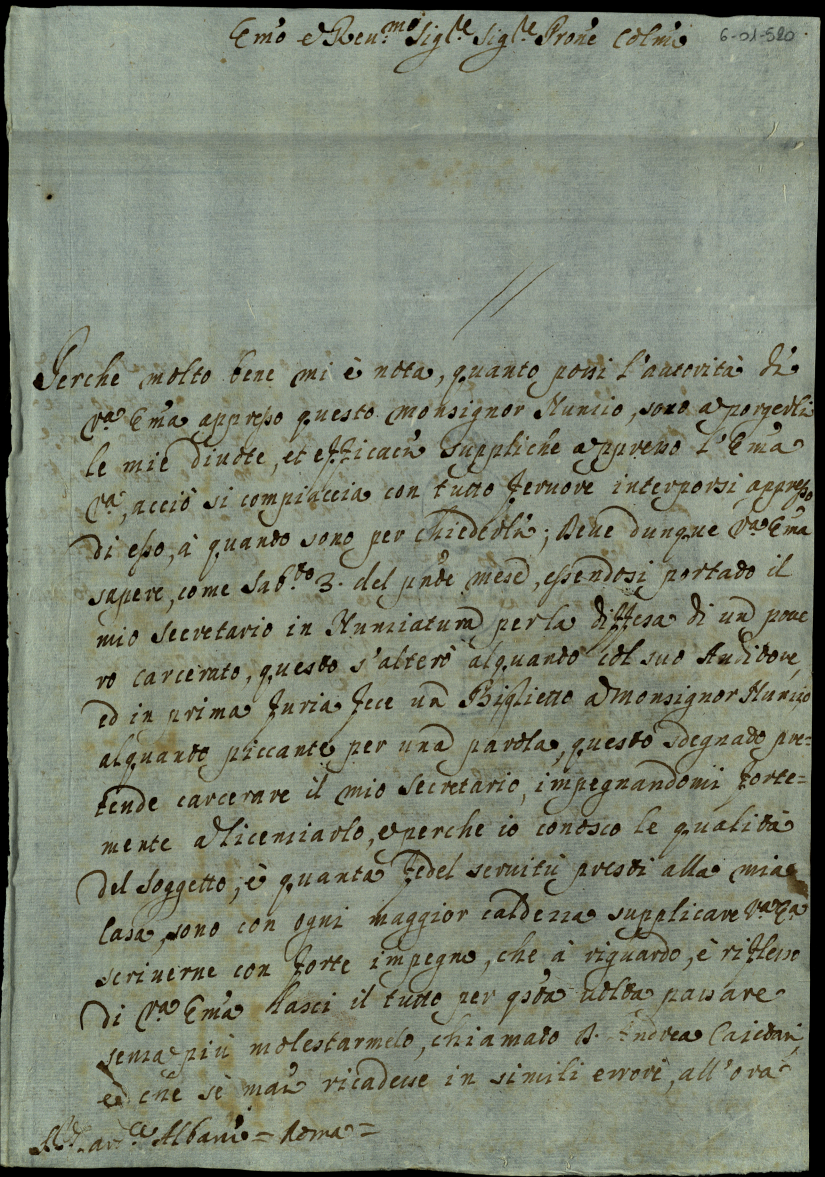 Emo e Reu.mo Sig.re Sig.re Prone Colmo
6-01-520
Perche molto bene mi è nota, quanto possi l'autorità di
Va Ema appresso questo Monsignor Nuncio, sono a porgerli
le mie diuote, et efficaci suppliche appresso l'Ema
Va, acciò si compiaccia con tutto feruore interporsi appresso
di esso, à quando sono per chiederli; Deue dunque Va Ema
sapere, come Sab.to 3. del pnte mese, essendosi portado il
mio secretario in Nunciatura per la diffesa di un poue
ro carcerato, questo s'alterò alquando col suo Auditore,
ed in prima furia fece un Biglietto a Monsignor Nuncio
alquando piccante per una parola, questo sdegnado pre=
tende carcerare il mio secretario, impegnandomi forte=
mente a licenciarlo, e perche io conosco le qualità
del soggetto, è quanta fedel seruitù presti alla mia
Casa, sono con ogni maggior caldezza supplicare Va Ea
scriuerne con forte impegno, che à riguardo, è riflesso
di Va Ema lasci il tutto per qsta uolta passare
senza più molestarmelo, chiamato D. Andrea
ed che se mai ricadesse in simili errori, all'ora
Albani = Roma =